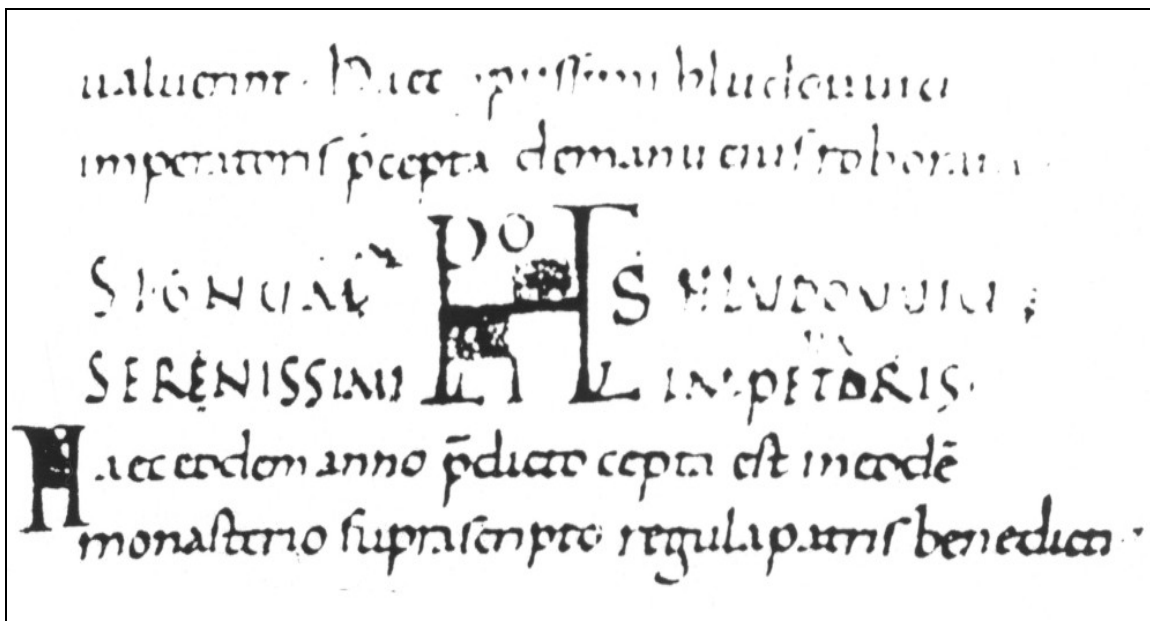 ualuerint. Haec piissimi hludouuici
imperatoris p̄cepta de manu eius roborata
SIGNUM HLUDOUUICI
SERENISSIMI IMPETORIS.
Haec eodem anno p̄dicto cepta est in eodē
monasterio suprascripto regula patris benedicti.